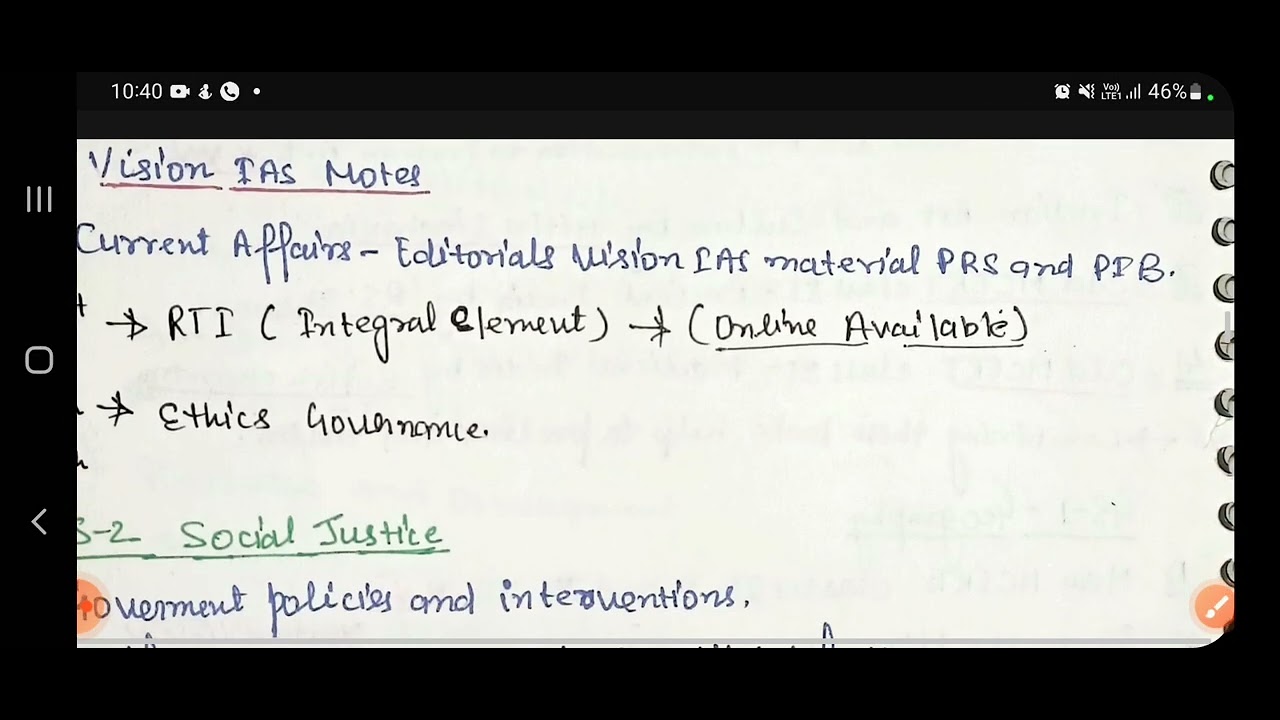 10:40
Vo)) LTE1 46%
Vision IAS Notes
Current Affairs - Editorials Vision IAS material PRS and PIB.
→ RTI ( Integral Element ) → ( Online Available )
→ Ethics Governance.
S-2 Social Justice
Goverment policies and interventions.